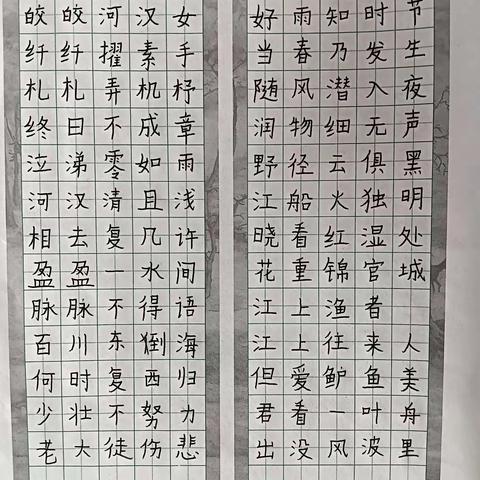 皎皎河汉女
纤纤擢素手
札札弄机杼
终日不成章
泣涕零如雨
河汉清且浅
相去复几许
盈盈一水间
脉脉不得语
百川东倒海
何时复西归
少壮不努力
老大徒伤悲
好雨知时节
当春乃发生
随风潜入夜
润物细无声
野径云俱黑
江船火独明
晓看红湿处
花重锦官城
江上渔者
江上往来人
但爱鲈鱼美
君看一叶舟
出没风波里